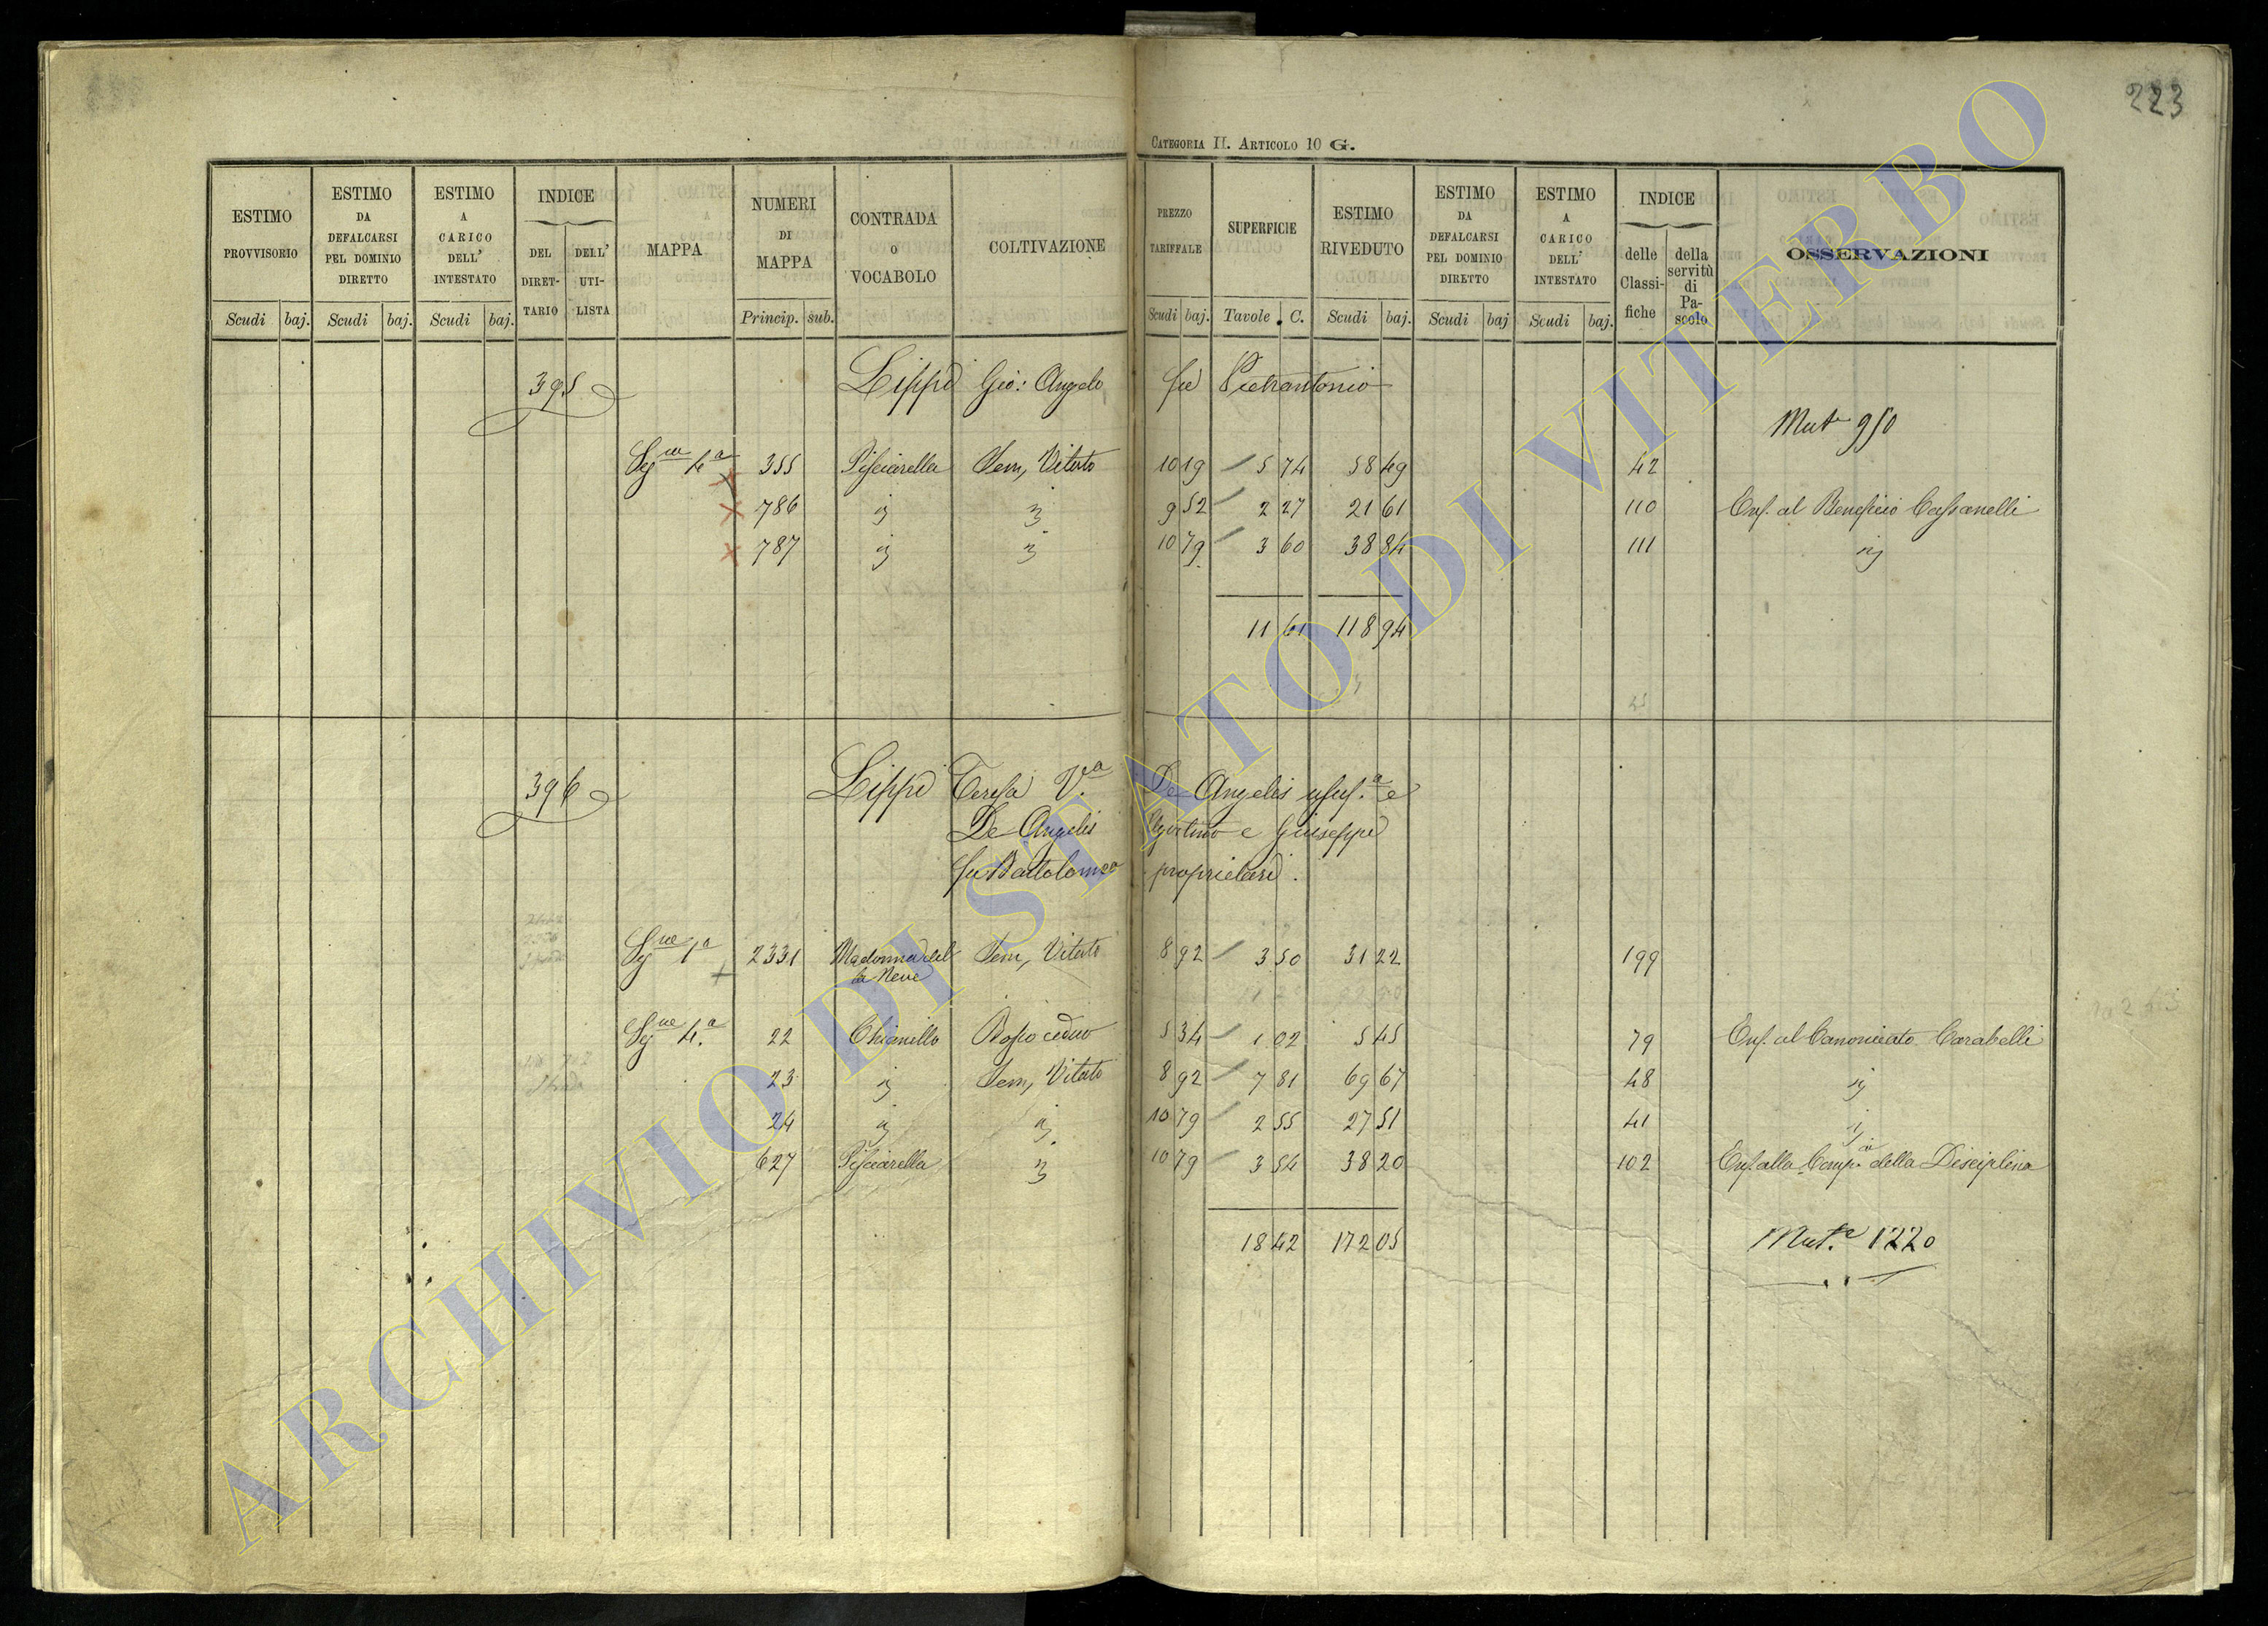 223
CATEGORIA II. ARTICOLO 10 G.
ESTIMO PROVVISORIO Scudi baj.
ESTIMO DA DEFALCARSI PEL DOMINIO DIRETTO Scudi baj.
ESTIMO A CARICO DELL' INTESTATO Scudi baj.
INDICE DEL DIRET-TARIO DELL' UTI-LISTA
MAPPA
NUMERI DI MAPPA Princip. sub.
CONTRADA O VOCABOLO
COLTIVAZIONE
PREZZO TARIFFALE Scudi baj.
SUPERFICIE Tavole C.
ESTIMO RIVEDUTO Scudi baj.
ESTIMO DA DEFALCARSI PEL DOMINIO DIRETTO Scudi baj
ESTIMO A CARICO DELL' INTESTATO Scudi baj.
INDICE delle Classi-fiche della servitù di Pa-scolo
OSSERVAZIONI
395 Lippi Gio: Angelo fu Pietrantonio
Mut 950
4a 355 Pisciarella Sem, Vitato 10 19 5 74 58 49 42
786 9 52 2 27 21 61 110 Enf. al Beneficio Cassanelli
787 10 79 3 60 38 84 111
11 61 118 94
396 Lippi Teresa V.a De Angelis usuf.a e
De Angelis Agostino e Giuseppe
fu Bartolomeo proprietari.
1a 2331 Madonna del Sem, Vitato 8 92 3 50 31 22 199
la Neve
4.a 22 Chianello Bosco ceduo 5 34 1 02 5 45 79 Enf. al Canonicato Carabelli
23 Sem, Vitato 8 92 7 81 69 67 48
24 10 79 2 55 27 51 41
627 Pisciarella 10 79 3 54 38 20 102 Enf. alla Comp. della Disciplina
18 42 172 05
Mut.e 1220
ARCHIVIO DI STATO DI VITERBO